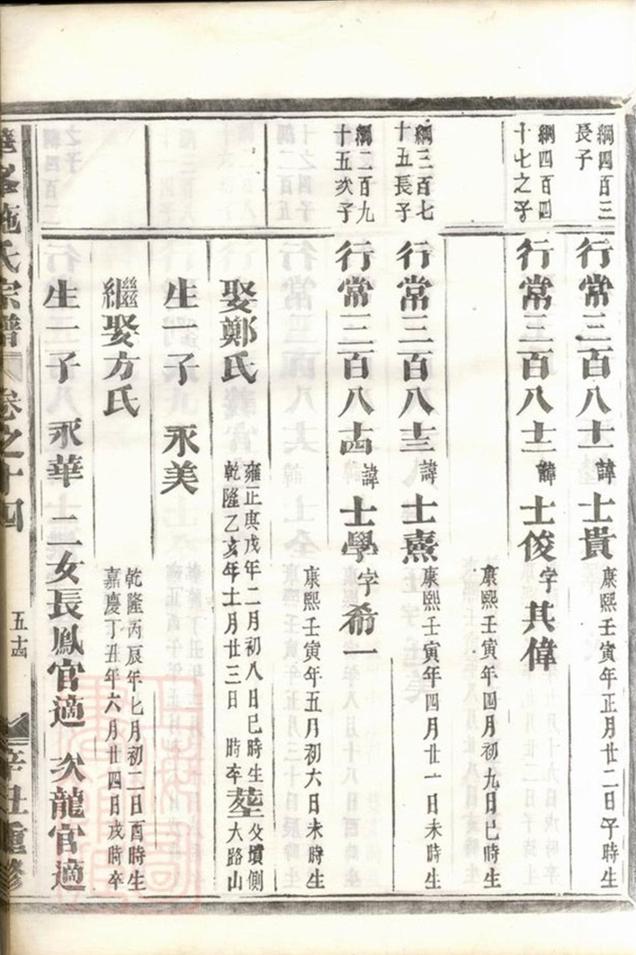 綱四百三
長子
行常三百八十一諱士貴
康熙壬寅年正月廿二日午時生
綱四百四
十七之子
行常三百八十二諱士俊字其偉
康熙壬寅年四月初九日巳時生
綱三百七
十五長子
行常三百八十三諱士熹
康熙壬寅年四月廿一日未時生
綱二百九
十五次子
行常三百八十四諱士學字希一
康熙壬寅年五月初六日未時生
娶鄭氏
雍正庚戌年二月初八日巳時生
乾隆乙亥年十一月廿三日 時卒
塟
父墳側
大路山
生一子 永美
繼娶方氏
乾隆丙辰年七月初二日酉時生
嘉慶丁丑年六月廿四日戌時卒
生一子 永華 二女長鳳官適 次龍官適
施氏宗譜 卷之十四
五十四
辛丑重修